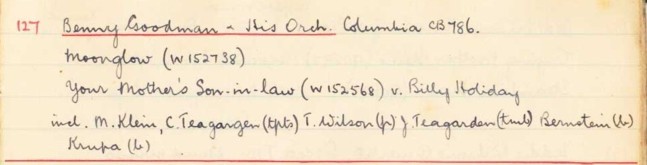 127 Benny Goodman - His Orch. Columbia CB 786.
Moonglow (W152738)
Your Mother's Son-in-law (W152568) v. Billy Holiday
incl. M. Klein, C. Teagargen (tpts) T. Wilson (p) J. Teagarden (tmb) Bernstein (b)
Krupa (b)